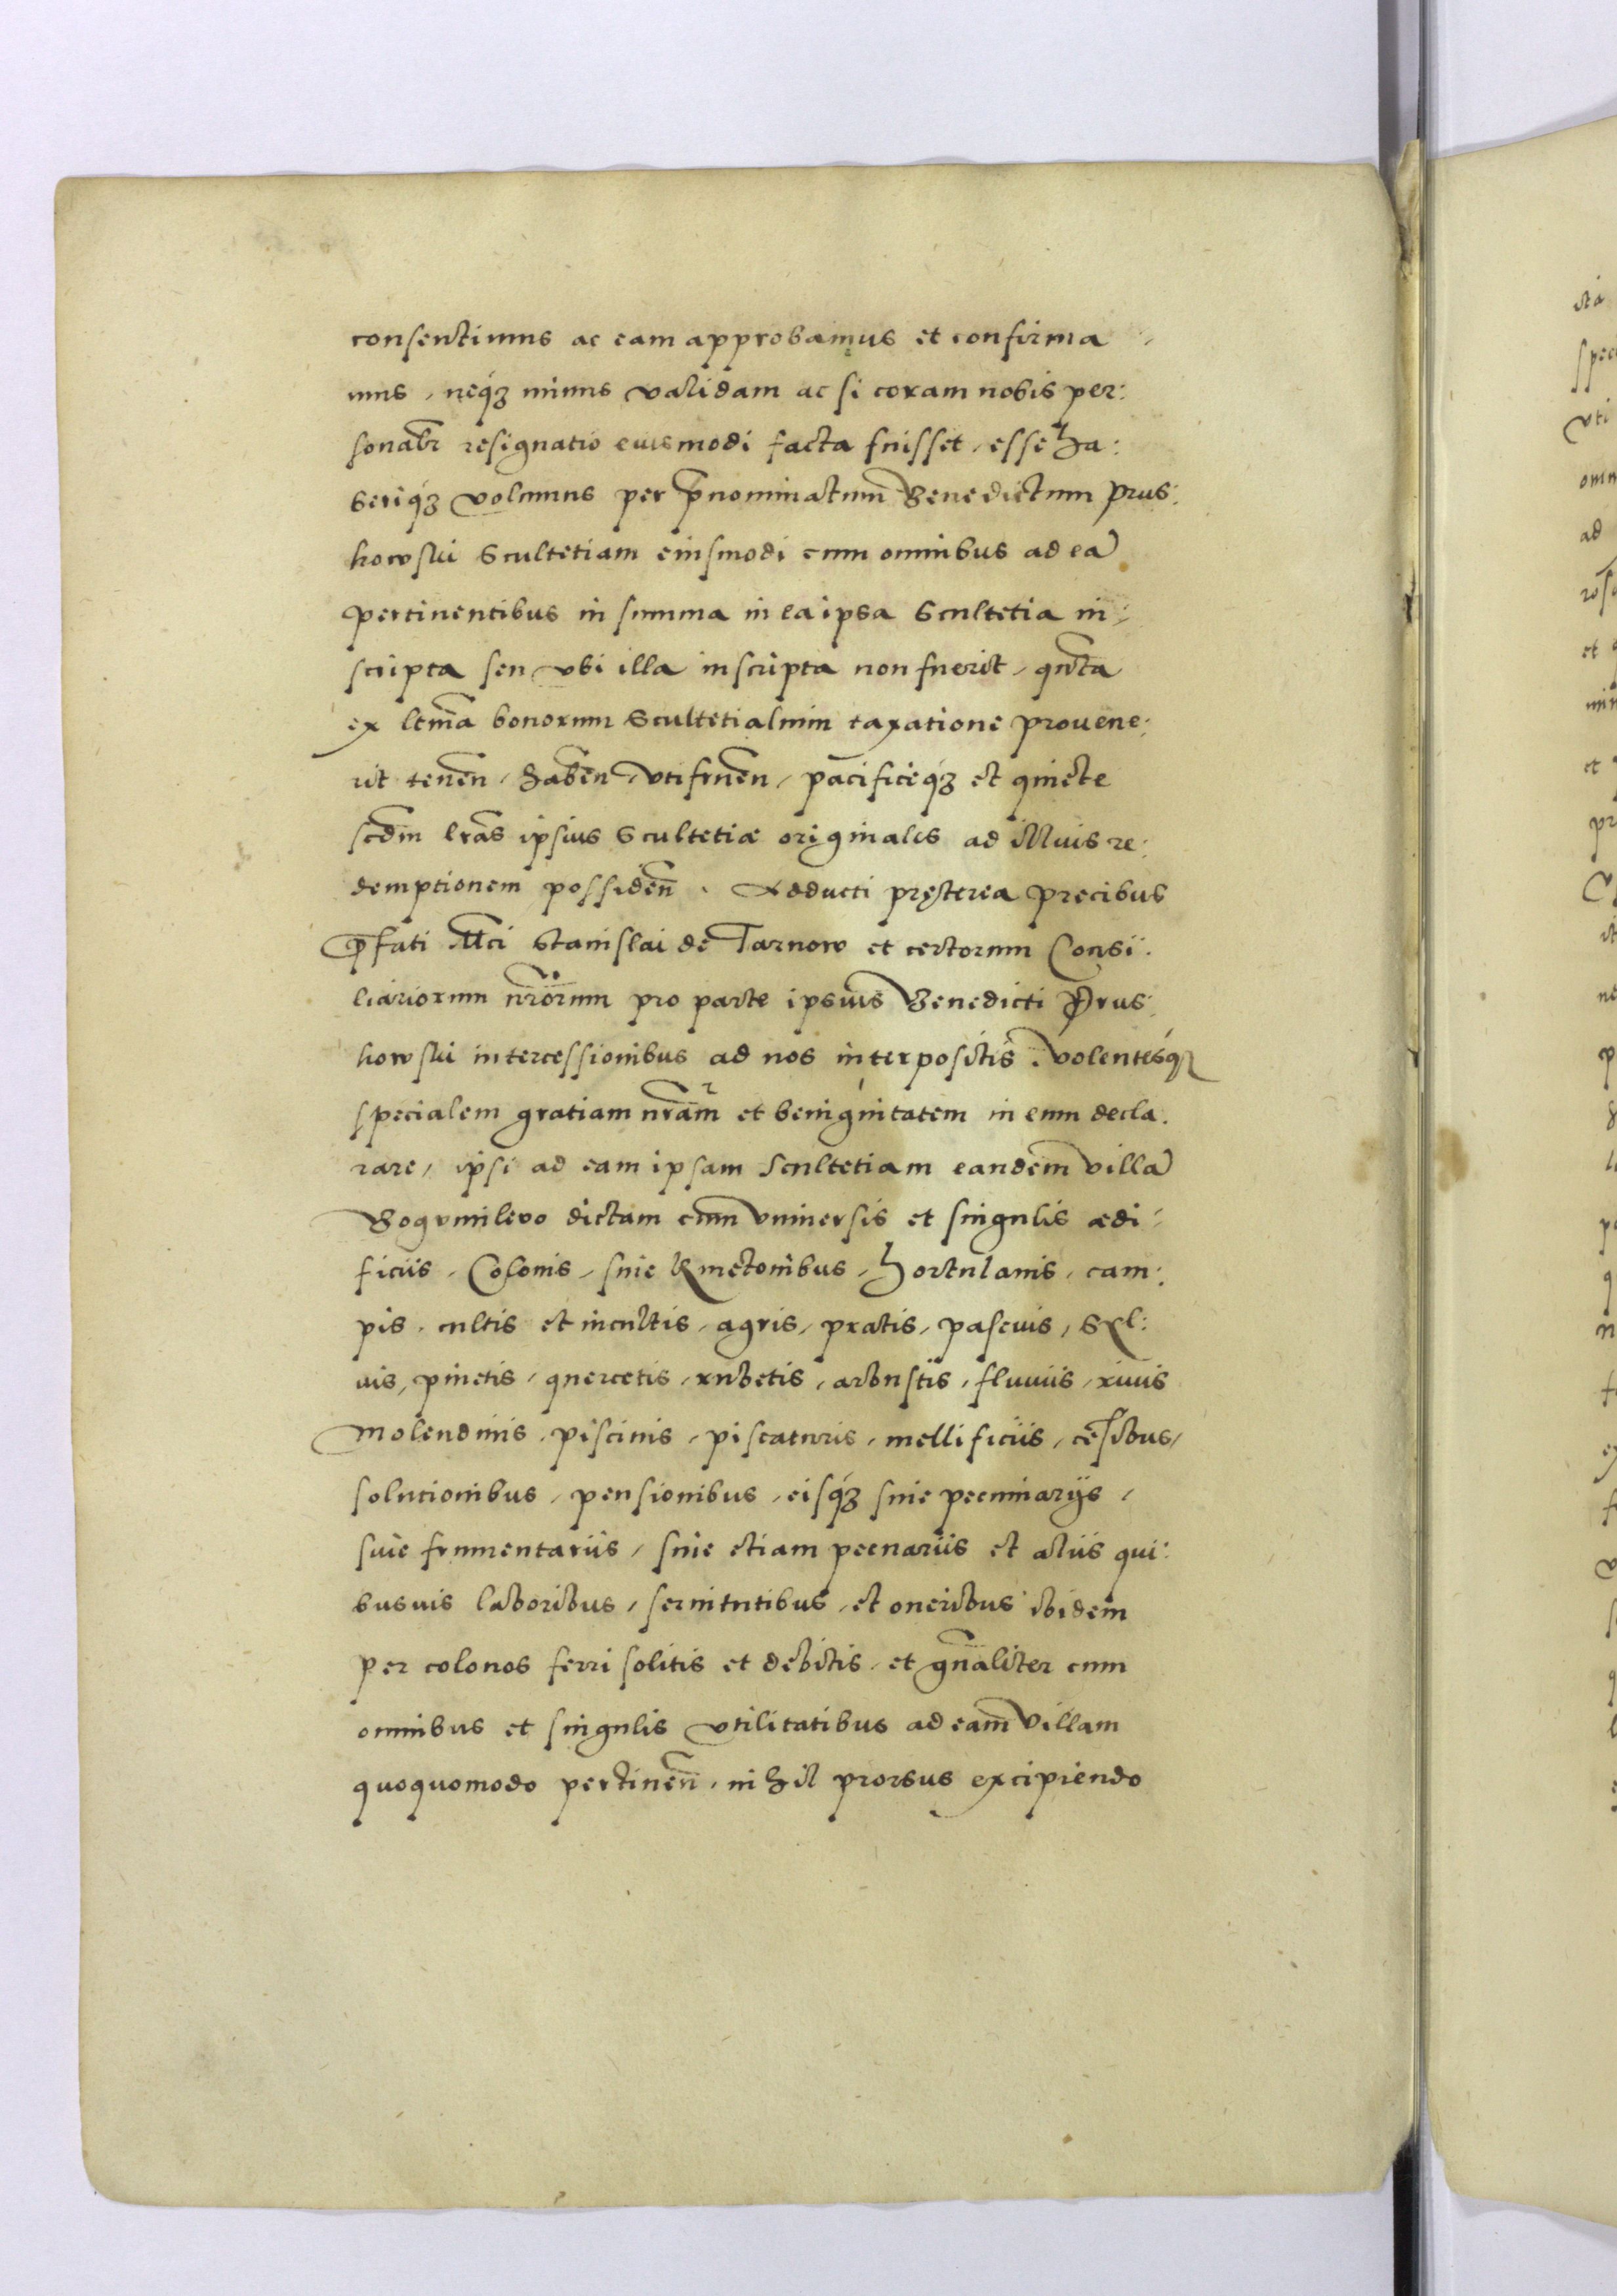 consentimus ac eam approbamus et confirma
mus, neq́ꝫ minus validam ac si coram nobis per:
sonalr̃ resignatio euismodi facta fuisset, esse ha:
beriq́ꝫ volumus per p̃nominatum Benedictum Prus:
kowski Scultetiam eiusmodi cum omnibus ad eã
pertinentibus in summa in ea ipsa Scultetia in:
scripta seu vbi illa inscripta non fuerit, qũta
ex ltm̃a bonorum Scultetialium taxatione prouene:
rit teneñ, habeñ, vtifrueñ, pacificeq́ꝫ et quiete
scd̃m lrãs ipsius Scultetiæ originales ad illius re:
demptionem possideñ. Adducti pręterea precibus
p̃fati Mc̃i Stanislai de Tarnow et certorum Consi:
liariorum nr̃orum pro parte ipsius Benedicti Prus:
kowski intercessionibus ad nos interpositis. Volentesq́
specialem gratiam nr̃am et benignitatem in eum decla:
rare, ipsi ad eam ipsam Scultetiam eandem villã
Bogumilevo dictam cum vniuersis et singulis ædi:
ficiis, Colonis, siue kmetonibus, Hortulanis, cam:
pis, cultis et incultis, agris, pratis, pascuis, Syl:
uis, pinetis, quercetis, rubetis, arbustis, fluuiis, riuis
Molendinis, piscinis, piscaturis, mellificiis, cẽsibus,
solutionibus, pensionibus, eisq́ꝫ siue pecuniarijs,
siue frumentariis, siue etiam pecuariis et aliis qui:
busuis laboribus, seruitutibus, et oneribus ibidem
per colonos ferri solitis et debitis, et gñaliter cum
omnibus et singulis vtilitatibus ad eam Villam
quoquomodo pertineñ, nihil prorsus excipiendo